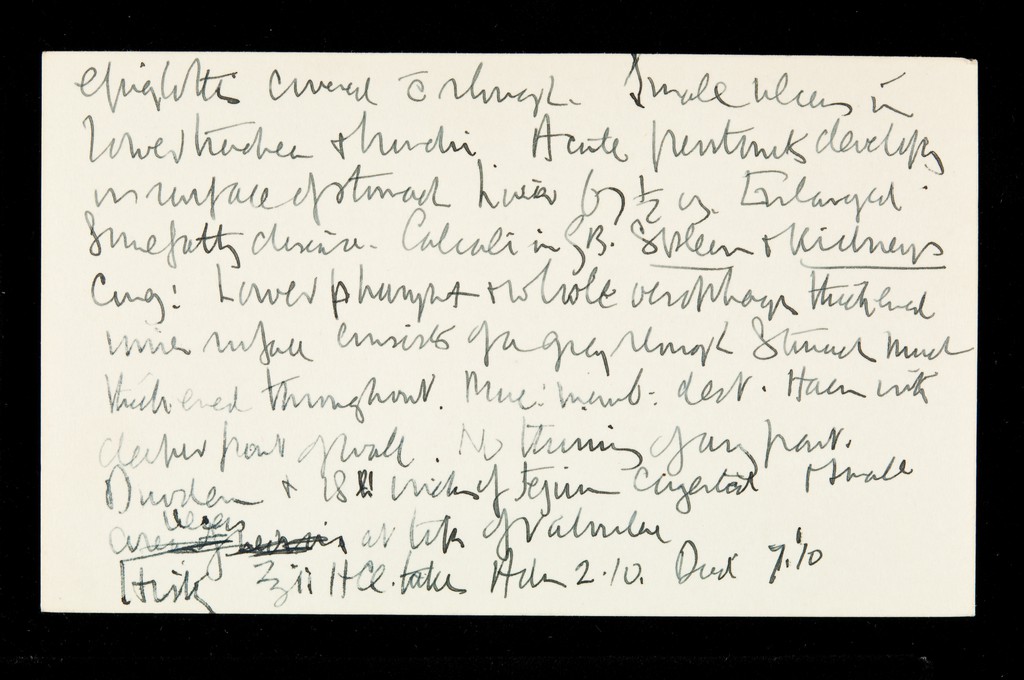 epiglottis covered c̄ slough. Small ulcers in
lower trachea + bronchi. Acute peritonitis developing
on surface of stomach Liver 67½ oz. Enlarged
Some fatty disease. Calculi in G.B. Spleen + Kidneys
Cong: Lower pharynx + whole oesophagus thickened
inner surface consists of a grey slough Stomach much
thickened throughout. Muc: memb: dest. Haem into
deeper part of wall. No thinning of any part.
Duoden + 18 inches of Jejun congested + small
ulcers at tops of valvulae
Hist ʒii HCl. taken Adm 2.10. Died 7.10